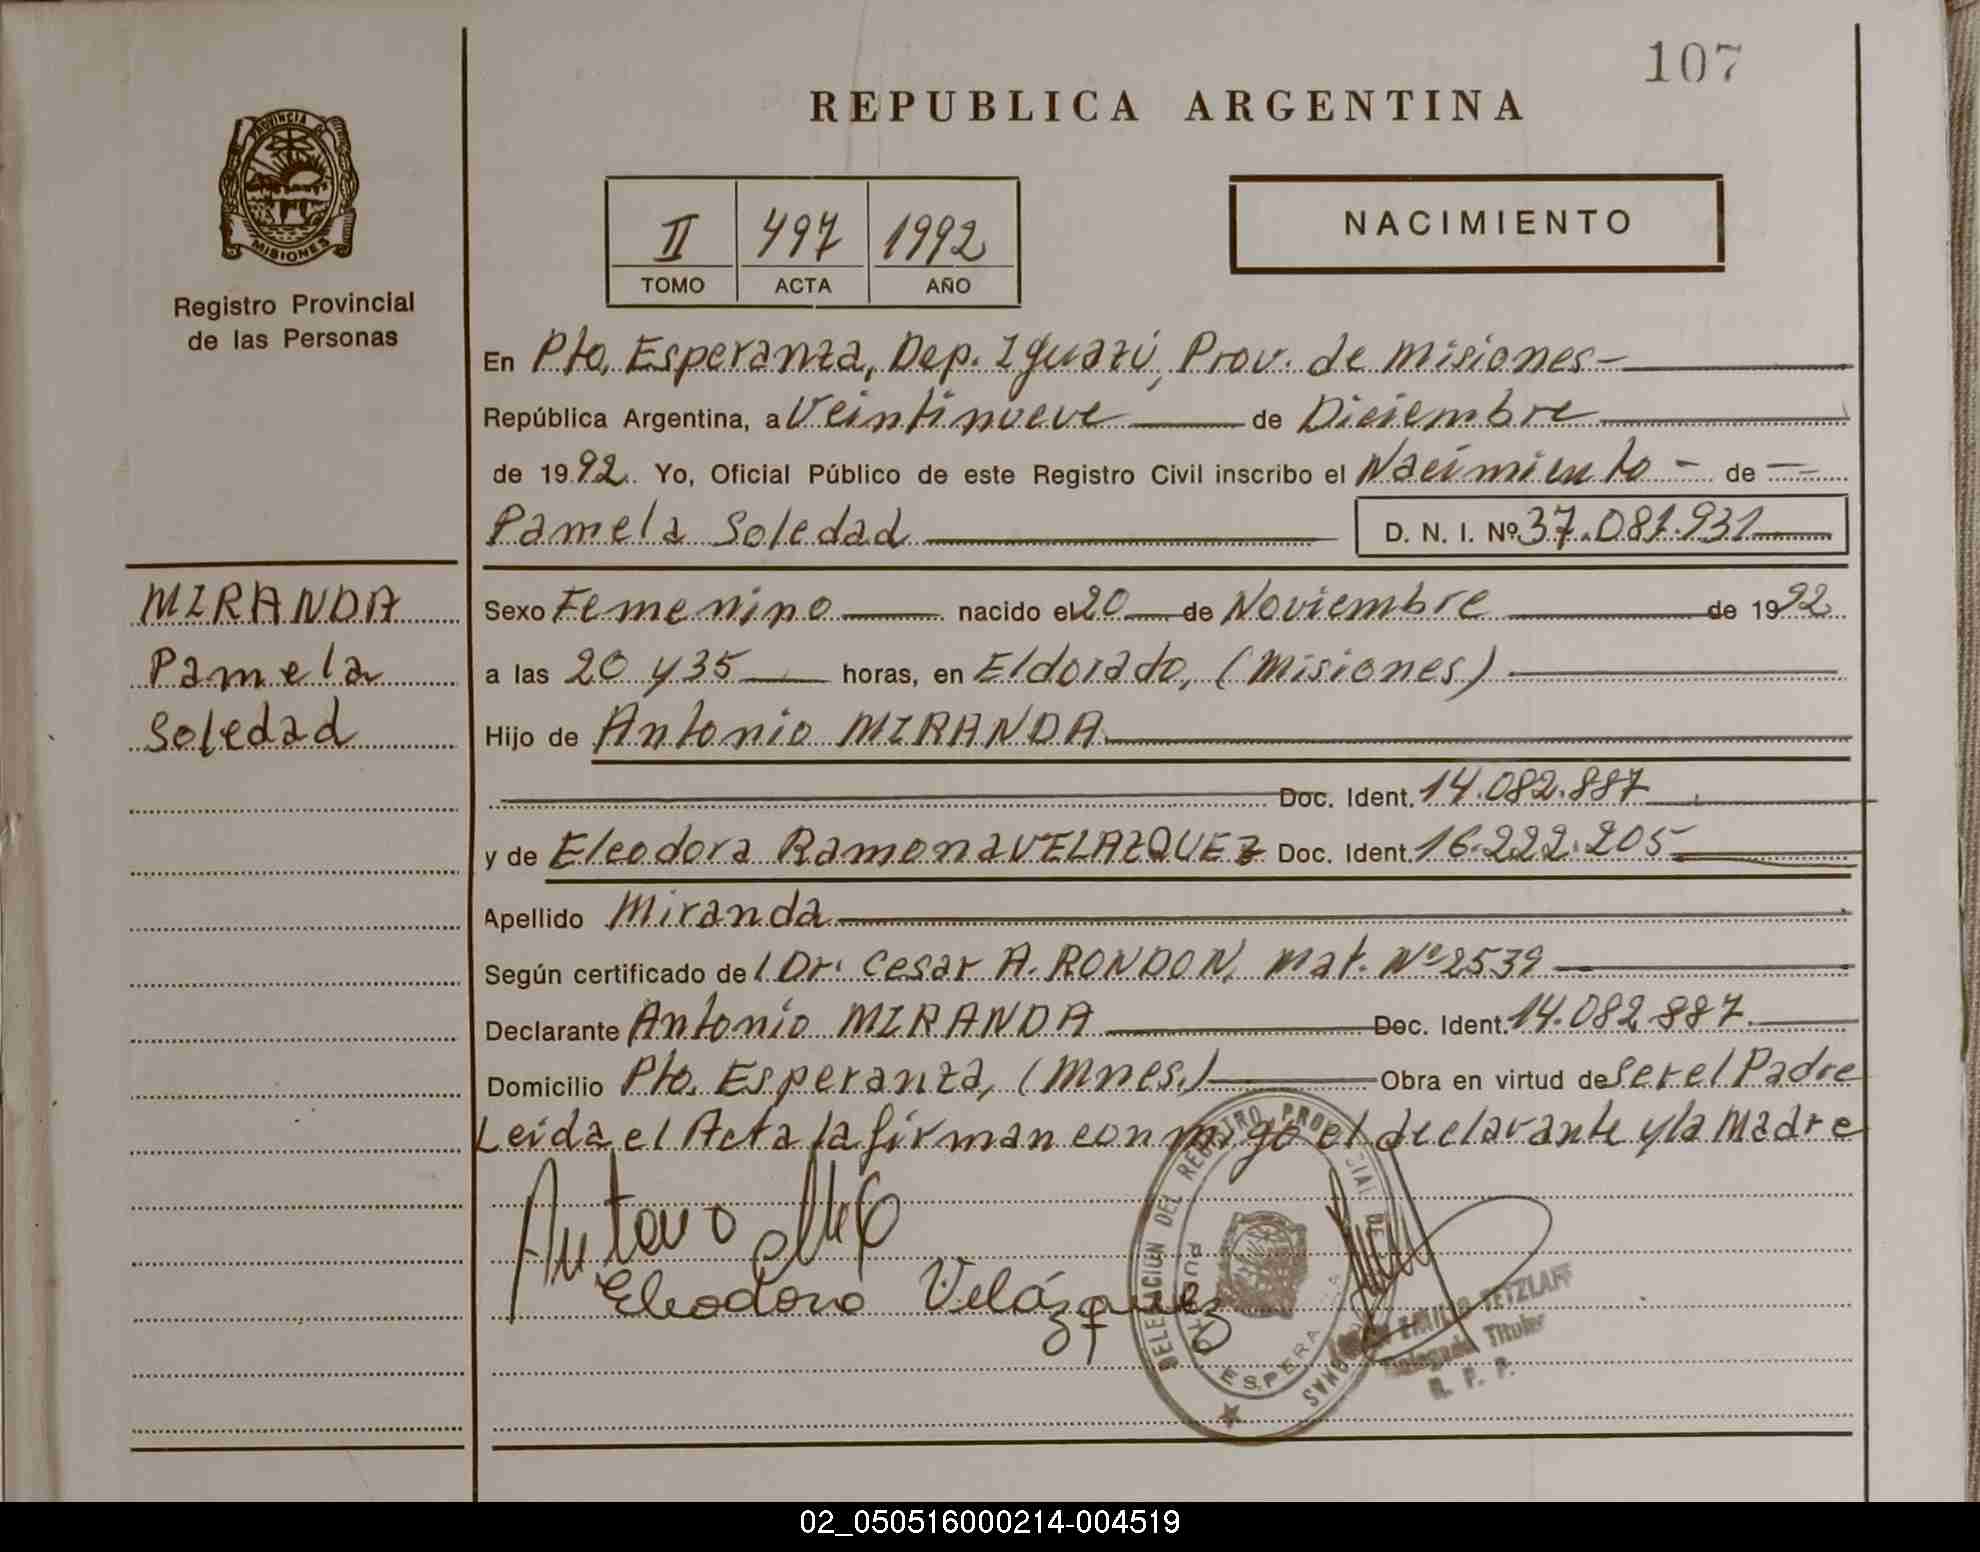 107
REPUBLICA ARGENTINA
PROVINCIA DE
MISIONES
Registro Provincial
de las Personas
II 497 1992
TOMO ACTA AÑO
NACIMIENTO
En Pto. Esperanza, Dep. Iguazú, Prov. de Misiones-
República Argentina, a Veintinueve de Diciembre
de 1992. Yo, Oficial Público de este Registro Civil inscribo el Nacimiento - de
Pamela Soledad D. N. I. Nº 37.081.931
MIRANDA
Pamela
Soledad
Sexo Femenino nacido el 20 de Noviembre de 1992
a las 20 y 35 horas, en Eldorado, (Misiones)
Hijo de Antonio MIRANDA
Doc. Ident. 14.082.887
y de Eleodora Ramona VELAZQUEZ Doc. Ident. 16.222.205
Apellido Miranda
Según certificado de l Dr. Cesar A. RONDON, Mat. Nº 2539
Declarante Antonio MIRANDA Doc. Ident. 14.082.887.
Domicilio Pto. Esperanza, (Mnes.) Obra en virtud de Ser el Padre
Leida el Acta la firman conmigo el declarante y la Madre
Eleodora Velázquez
DELEGACION DEL REGISTRO PROVINCIAL DE
PUERTO ESPERANZA
EMILIO TETZLAFF
Delegado Titular
R. P. P.
02_050516000214-004519